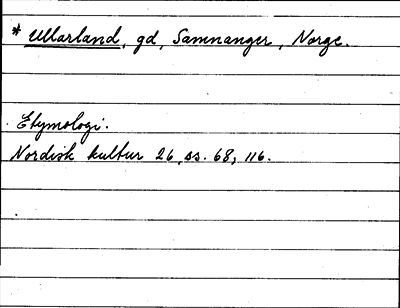 * Ullarland, gd, Samnanger, Norge.
Etymologi.
Nordisk kultur 26, ss. 68, 116.